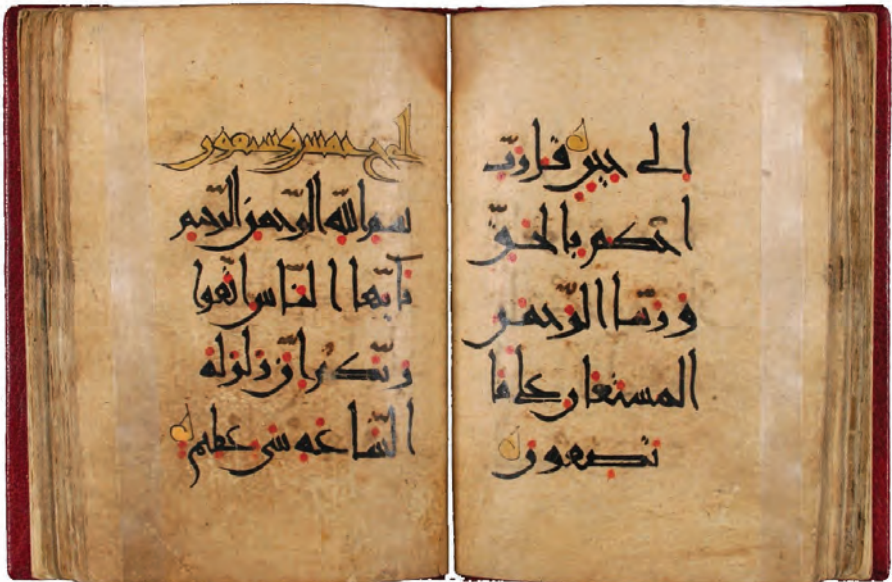 الى حين قل ربّ
احكم بالحقّ
و ربّنا الرّحمن
المستعان على ما
تصفون
الحج خمس وسبعون
بسم اللّه الرّحمن الرّحيم
يايّها النّاس اتّقوا
ربّكم انّ زلزلة
السّاعة شى عظيم